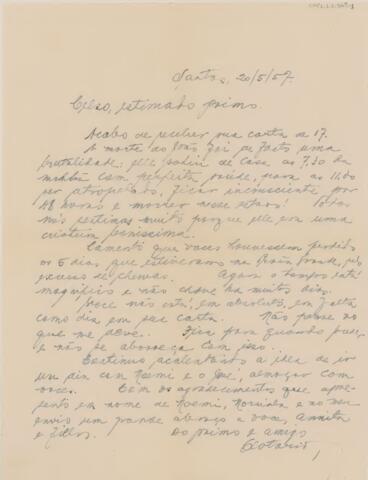 Santos, 20/5/57.
Celso, estimado primo.
Acabo de receber sua carta de 17.
A morte do João foi de fato uma
brutalidade: ele sahiu de casa as 7,30 da
manhã com perfeita saúde, para as 11,00
ser atropelado, ficar inconsciente por
48 horas e morrer nesse estado! Todos
nós sentimos muito porque ele era uma
criatura boníssima.
Lamento que voces houvessem perdido
os 5 dias que estiveram na Praia Grande, pelo
excesso de chuvas. Agora o tempo está
magnífico e não chove ha muitos dias.
Voce não está, em absoluto, em falta
como diz em sua carta. Não pense no
que me deve. Fica para quando puder,
e não se aborreça com isso.
Continuo acalentando a idea de ir
um dia com Noemi e o José, almoçar com
voces. Com os agradecimentos que apre-
sento em nome de Noemi, e no meu
envio um grande abraço a voce,
e filhos. Do primo e amigo